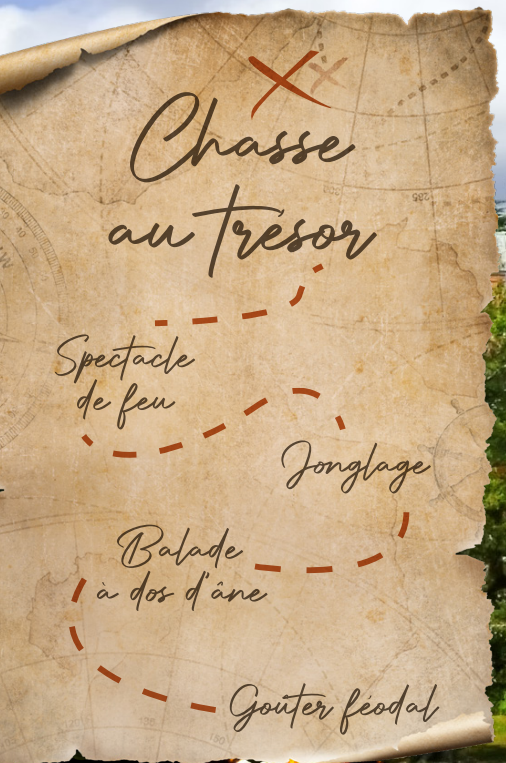 Chasse
au trésor
Spectacle
de feu
Jonglage
Balade
à dos d'âne
Goûter féodal